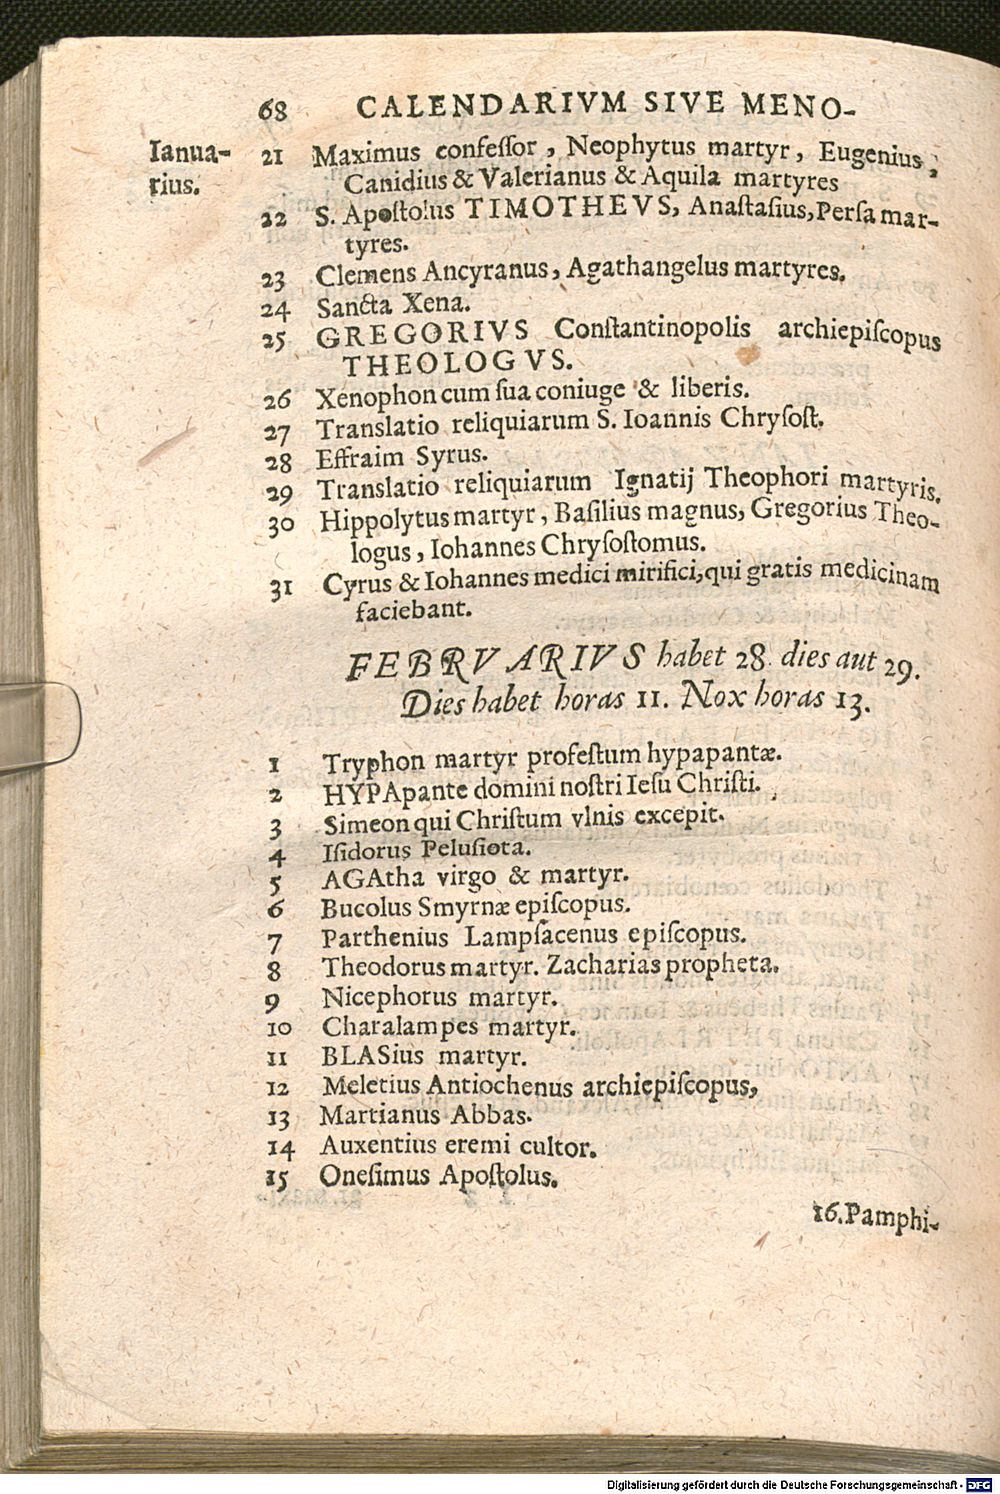 68 CALENDARIVM SIVE MENO-
Ianua-
rius.
21 Maximus confeſſor , Neophytus martyr, Eugenius,
Canidius & Valerianus & Aquila martyres
22 S. Apoſtolus TIMOTHEVS, Anaſtaſius, Perſa mar-
tyres.
23 Clemens Ancyranus, Agathangelus martyres.
24 Sancta Xena.
25 GREGORIVS Conſtantinopolis archiepiſcopus
THEOLOGVS.
26 Xenophon cum ſua coniuge & liberis.
27 Translatio reliquiarum S. Ioannis Chryſoſt.
28 Effraim Syrus.
29 Translatio reliquiarum Ignatij Theophori martyris.
30 Hippolytus martyr, Baſilius magnus, Gregorius Theo-
logus, Iohannes Chryſoſtomus.
31 Cyrus & Iohannes medici mirifici, qui gratis medicinam
faciebant.
FEBRVARIVS habet 28 dies aut 29.
Dies habet horas 11. Nox horas 13.
1 Tryphon martyr profeſtum hypapantæ.
2 HYPApante domini noſtri Ieſu Chriſti.
3 Simeon qui Chriſtum vlnis excepit.
4 Iſidorus Peluſiota.
5 AGAtha virgo & martyr.
6 Bucolus Smyrnæ epiſcopus.
7 Parthenius Lampſacenus epiſcopus.
8 Theodorus martyr. Zacharias propheta.
9 Nicephorus martyr.
10 Charalampes martyr.
11 BLASius martyr.
12 Meletius Antiochenus archiepiſcopus,
13 Martianus Abbas.
14 Auxentius eremi cultor.
15 Oneſimus Apoſtolus.
16. Pamphi-
Digitalisierung gefördert durch die Deutsche Forschungsgemeinschaft - DFG